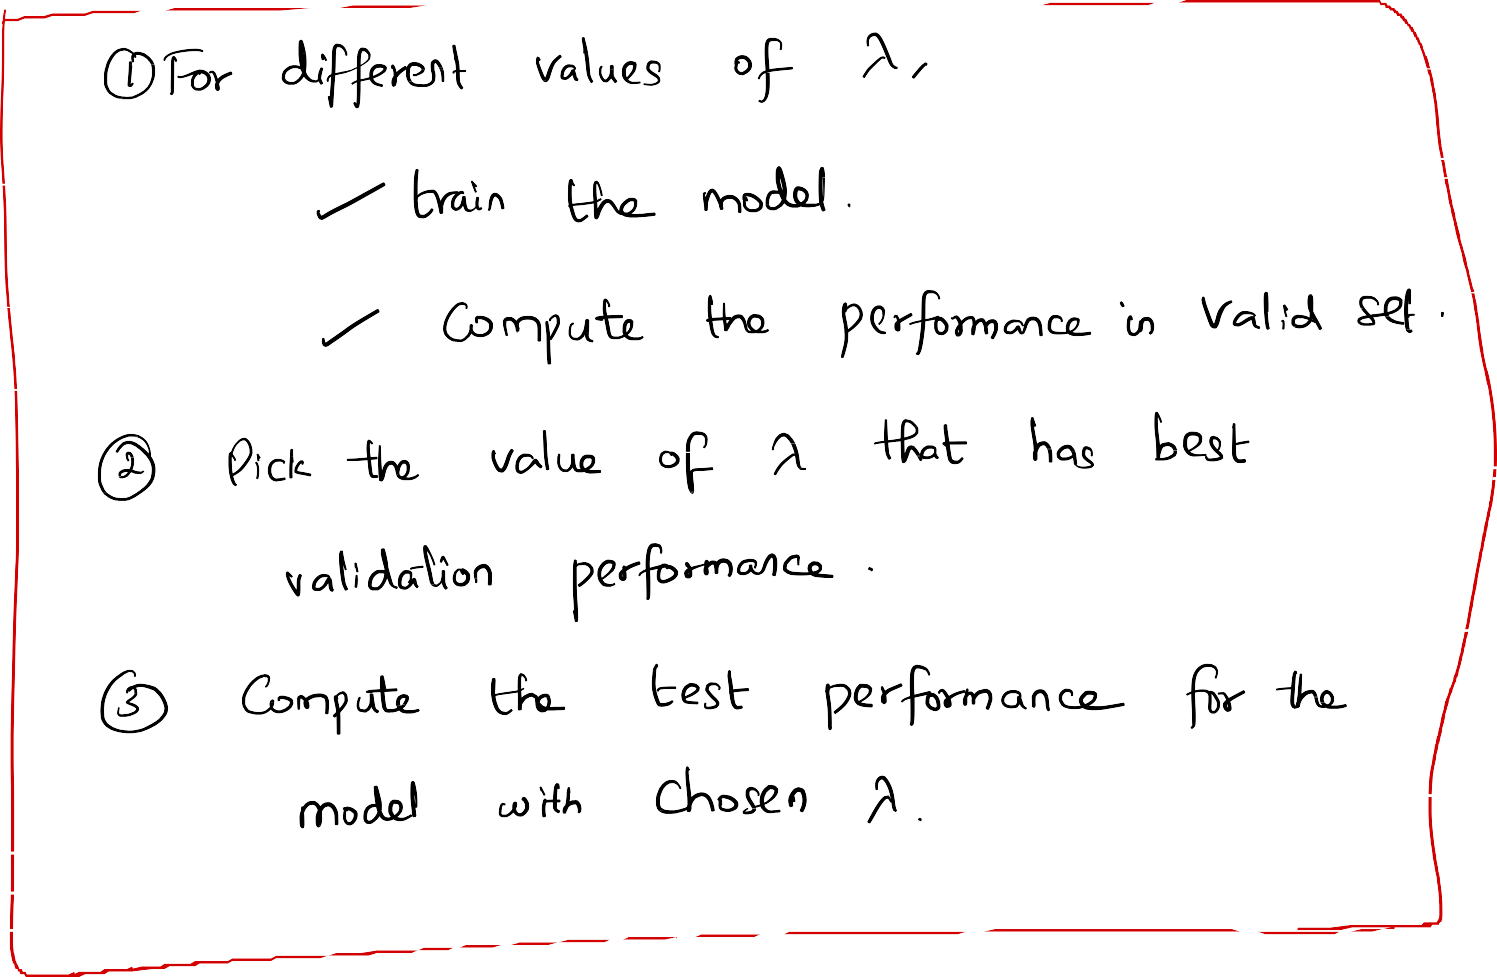 ① For different values of λ,
✓ train the model.
✓ Compute the performance in valid set.
② Pick the value of λ that has best
validation performance.
③ Compute the test performance for the
model with chosen λ.